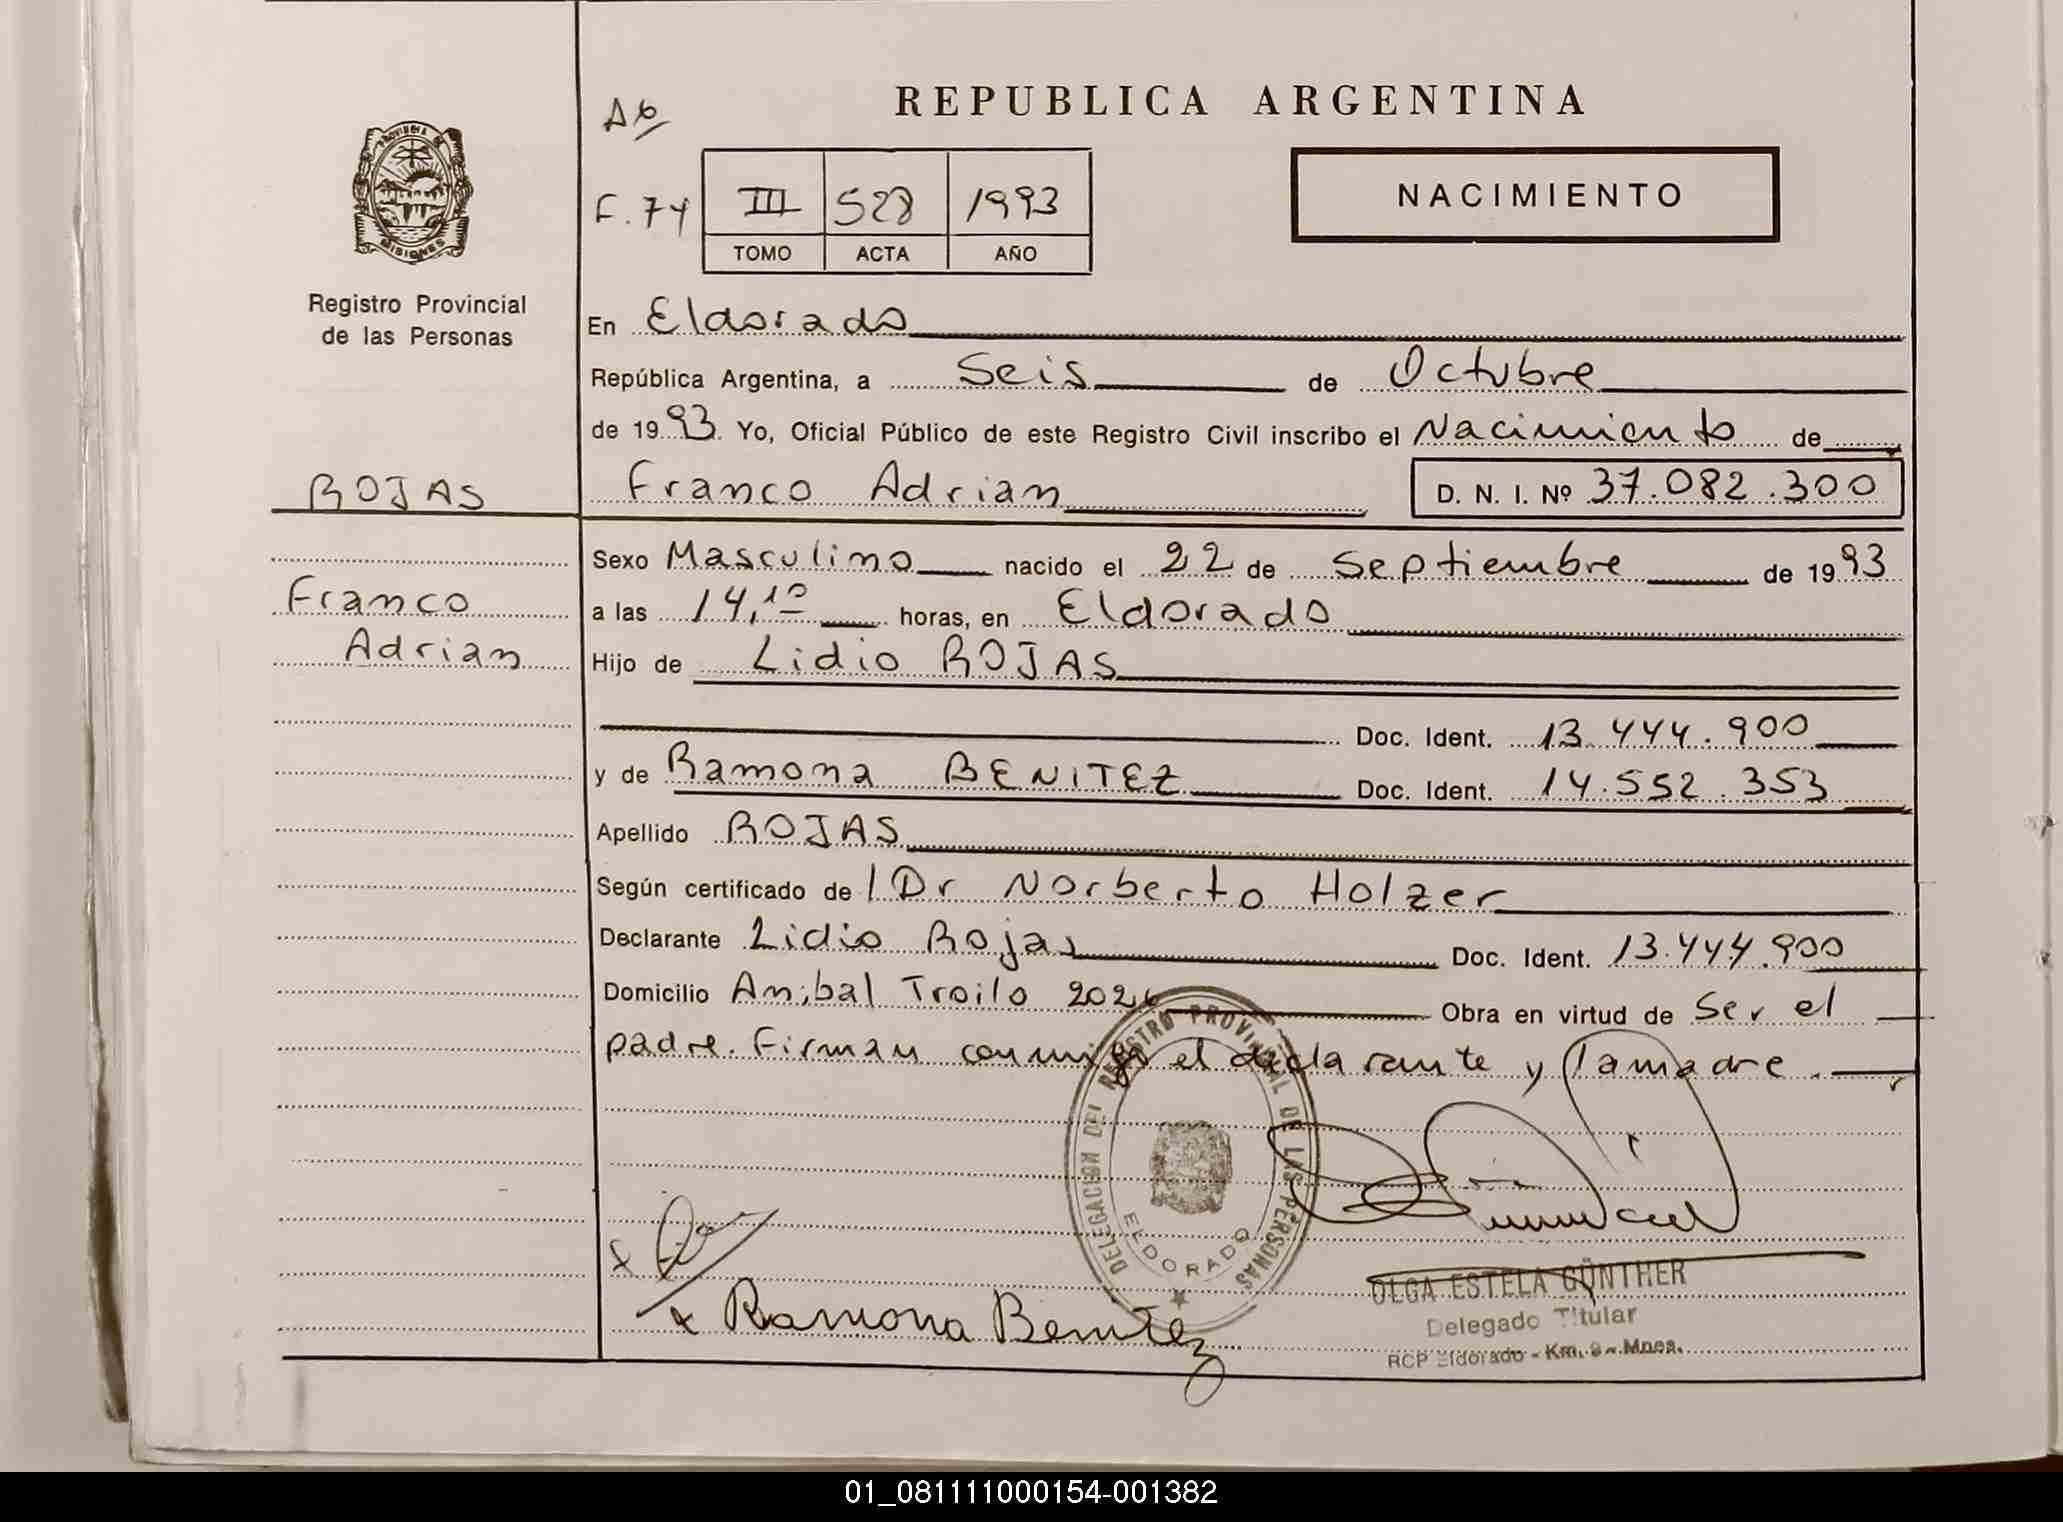 REPUBLICA ARGENTINA
PROVINCIA DE
MISIONES
Registro Provincial
de las Personas
F. 74
III 528 1993
TOMO ACTA AÑO
NACIMIENTO
En Eldorado
República Argentina, a Seis de Octubre
de 1993. Yo, Oficial Público de este Registro Civil inscribo el Nacimiento de
ROJAS
Franco Adrian D. N. I. Nº 37.082.300
Sexo Masculino nacido el 22 de Septiembre de 1993
Franco
Adrian
a las 14,10 horas, en Eldorado
Hijo de Lidio ROJAS
Doc. Ident. 13.444.900
y de Ramona BENITEZ Doc. Ident. 14.552.353
Apellido ROJAS
Según certificado de l Dr Norberto Holzer
Declarante Lidio Rojas Doc. Ident. 13.444.900
Domicilio Anibal Troilo Obra en virtud de Ser el
padre. Firman conmigo el declarante y la madre.
DELEGACION DEL REGISTRO PROVINCIAL DE LAS PERSONAS
ELDORADO
x Ramona Benitez
OLGA ESTELA GÜNTHER
Delegado Titular
RCP Eldorado - Km. 9 - Mnes.
01_081111000154-001382